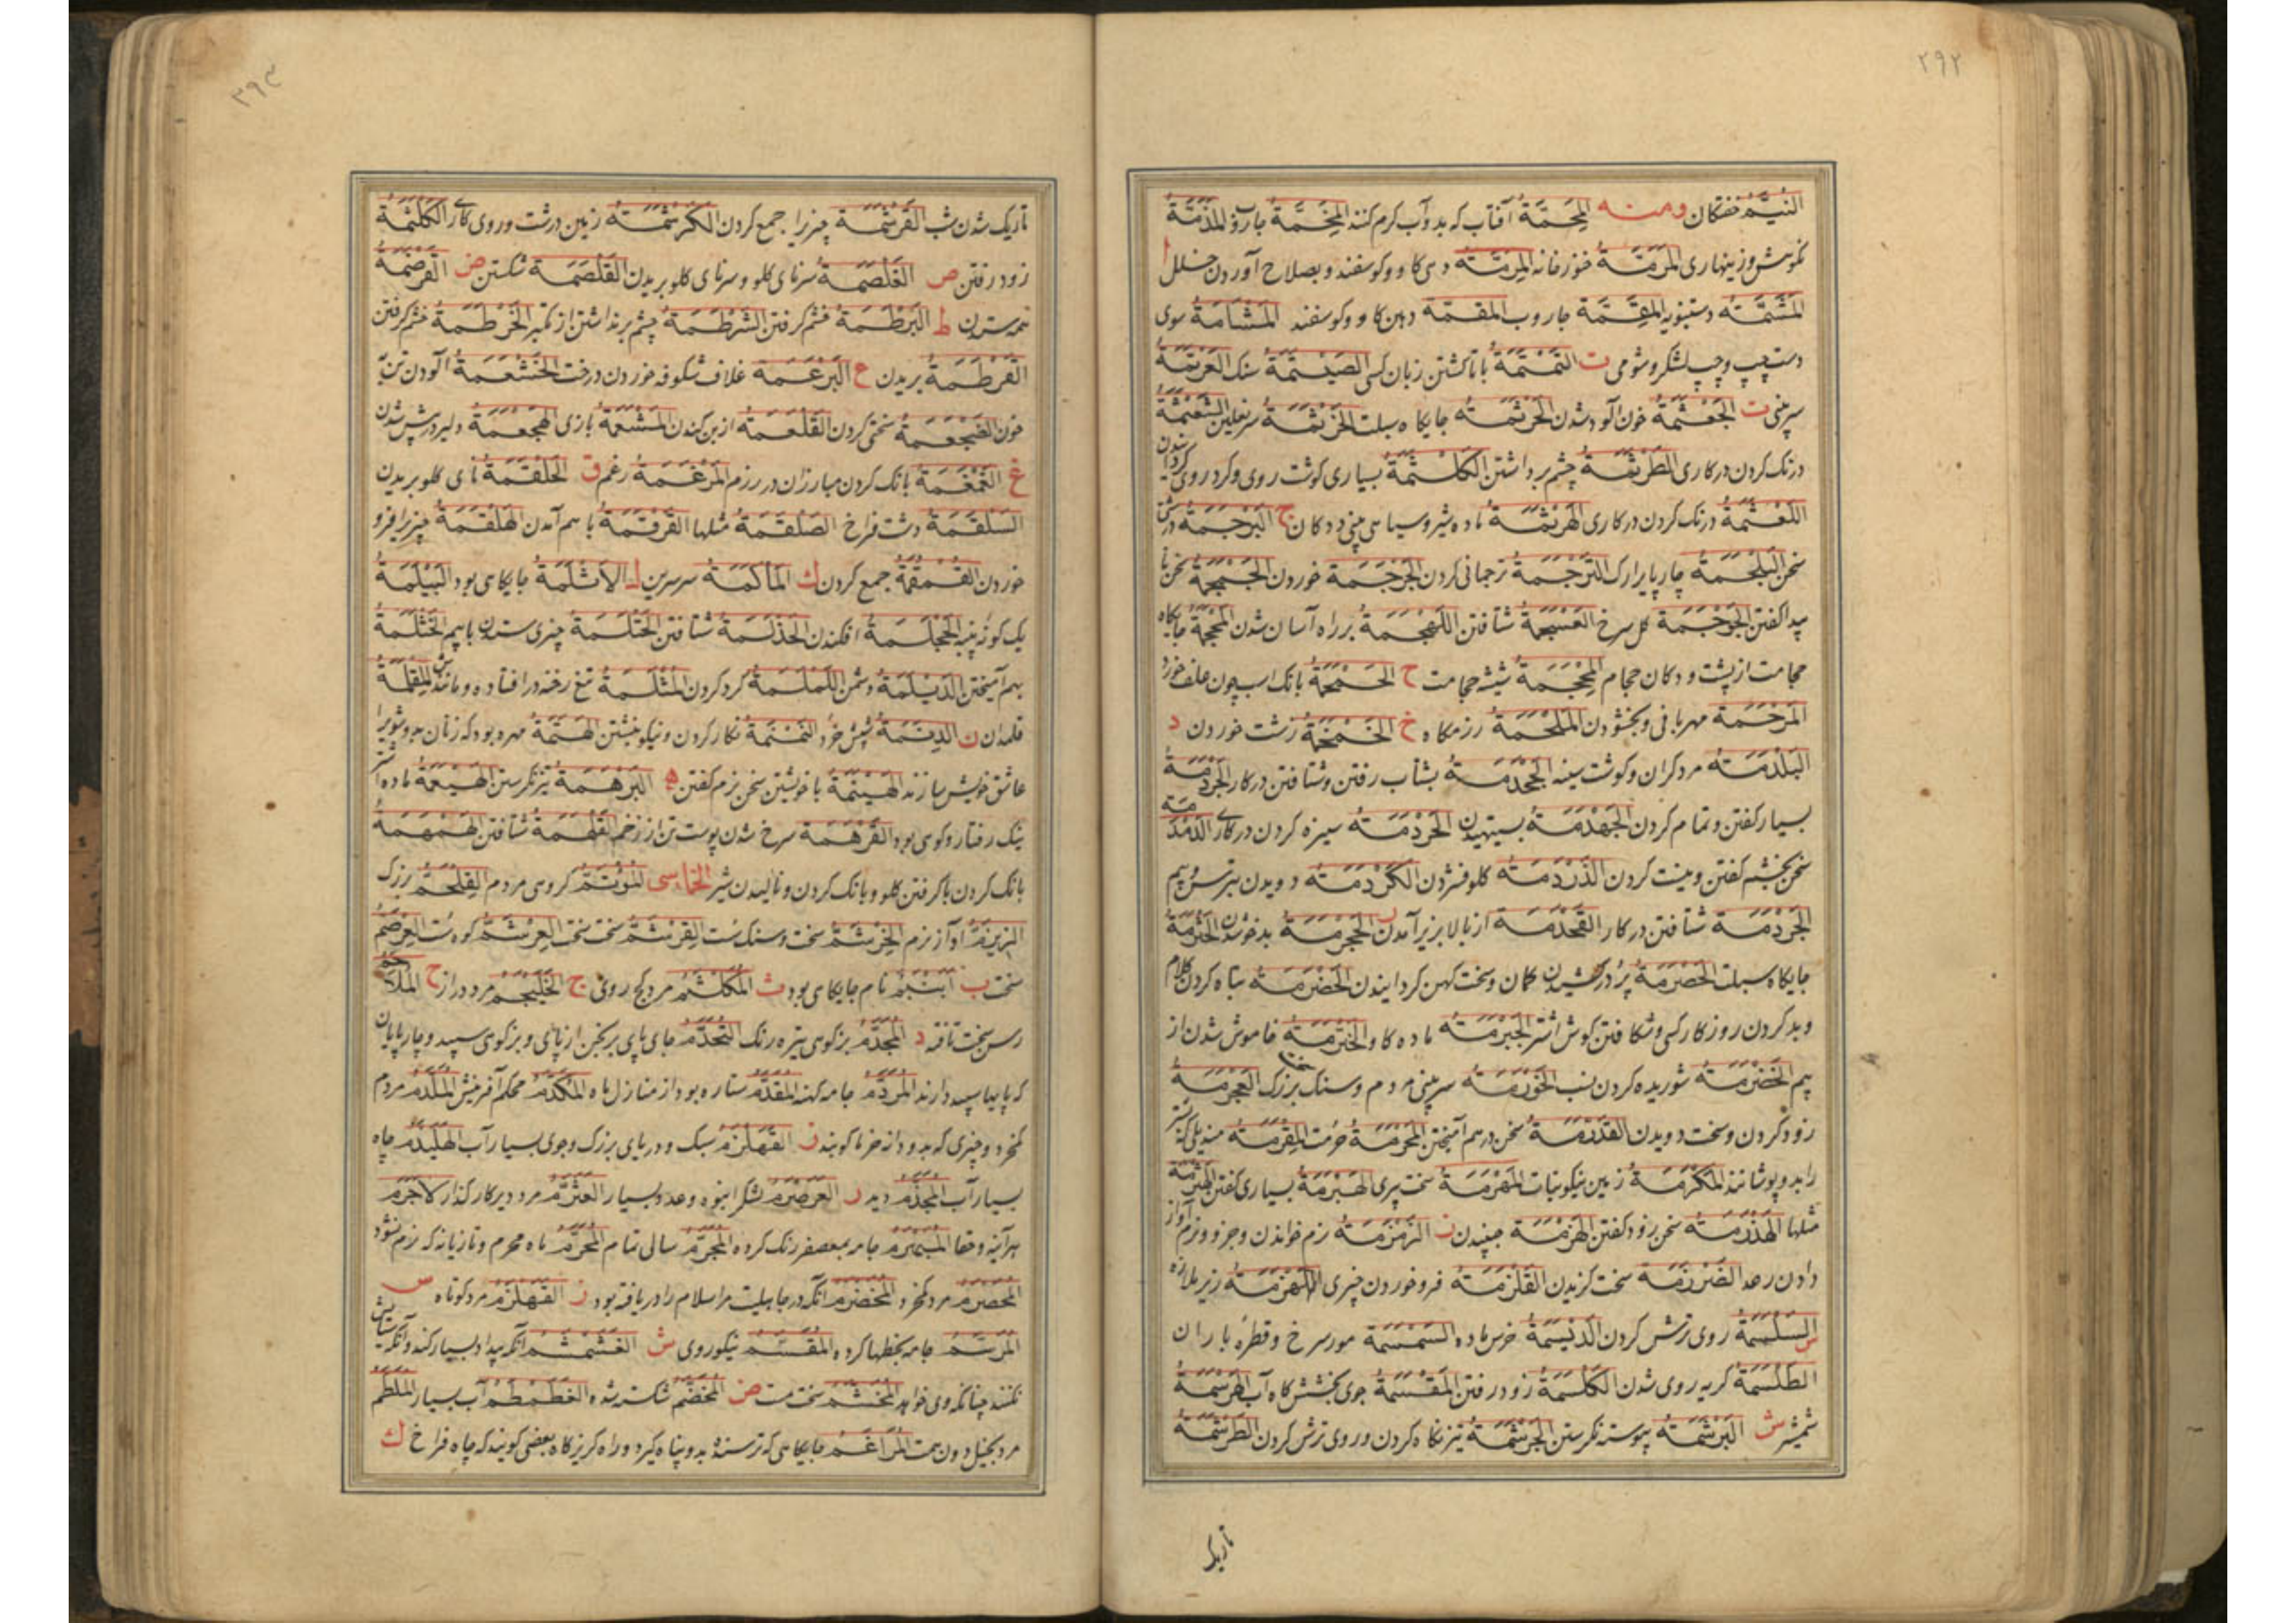 ۲۹۲
النُیَّم خفتکان ومنه المِحَمَّة آفتاب که بدو آب کرم کنند المِخَمَّة جاروب المَذَمَّة
نکوهش و زینهاری المَرَمَّة خورخانه المِرَمَّة دهن کاو و کوسفند و بصلاح آوردن خلل
المَشَمَّة دستنبویه المِقَمَّة جاروب المقمة دهن کاو و کوسفند المَشْأَمَة سوی
دست چپ و چپ لشکر و شومی ت التَمْتَمَة با تا کشتن زبان کسی الصَیْتَمَة سنک العَرْتَمَة
سر بینی ث الجَعْثَمَة خون آلود شدن الحَرْثَمَة جایکاه سبلت الخَرْثَمَة سر نعلین
درنک کردن در کاری الطَرْثَمَة چشم برداشتن الکَلْثَمَة بسیاری کوشت روی و کرد روی
اللَعْثَمَة درنک کردن در کاری الهَرْثَمَة ماده شیر و سیاهی بینی ددکان ج البَرْجَمَة
سخن البَلْجَمَة التَرْجَمَة ترجمانی کردن الجَرْجَمَة خوردن الجَمْجَمَة سخن نا
پیدا کفتن الحَوْجَمَة کل سرخ العَسْجَمَة شتافتن اللَهْجَمَة بر راه آسان شدن المَحْجَمَة جایکاه
حجامت از پشت و دکان حجام المِحْجَمَة شیشه حجامت ح الحَمْحَمَة بانک اسب چون علف خورد
المَرْحَمَة مهربانی و بخشودن المَلْحَمَة رزمکاه خ الخَمْخَمَة زشت خوردن د
البَلْدَمَة مرد کران و کوشت سینه الجَحْدَمَة بشتاب رفتن و شتافتن در کار الجَرْدَمَة
بسیار کفتن و تمام کردن الجَهْدَمَة بستیهیدن الحَرْدَمَة ستیزه کردن در کار الدَمْدَمَة
سخن بخشم کفتن و نیست کردن الدَرْدَمَة کلو فشردن الکَرْدَمَة دویدن بترس و بیم
الجَرْدَمَة شتافتن در کار القَحْدَمَة از بالا بزیر آمدن ر الحَجْرَمَة بدخو شدن الحَثْرَمَة
جایکاه سبلت الحَصْرَمَة پر در کشیدن کمان و سخت کهن کردانیدن الحَضْرَمَة تباه کردن کلام
و بد کردن روزکار کسی و شکافتن کوش اشتر الجَیْرَمَة ماده کاو الخَتْرَمَة خاموش شدن از
بیم الخَضْرَمَة شوریده کردن نسب الخَوْرَمَة سر بینی مردم و سنک بزرک العَجْرَمَة
زود کردن و سخت دویدن سخن در هم آمیختن المَحْرَمَة حرمت المِقْرَمَة
را بدو پوشانند المَکْرَمَة زمین نیکو نبات المَهْرَمَة سخت پیری الهَبْرَمَة بسیاری کفتن
مثلها الهَذْرَمَة سخن زود کفتن الهَزْمَة جنبیدن ز الزَمْزَمَة نرم خواندن و جز و نرم آواز
دادن رعد الضَرْزَمَة سخت کزیدن القَلْزَمَة فرو خوردن چیزی اللَهْزَمَة زیر ملازه
س روی ترش کردن الدَیْسَمَة خرس ماده السَمْسَمَة مور سرخ و قطره باران
الطَلْسَمَة کریه روی شدن الکَلْسَمَة زود رفتن المَقْسَمَة جوی بخشش کاه آب
شمشیر ش البَرْشَمَة پیوسته نکرستن الجَرْشَمَة تیز نکاه کردن و روی ترش کردن الطَرْشَمَة
تاریک
۲۹۳
تاریک شدن شب القَرْشَمَة چیز را جمع کردن الکَرْشَمَة زمین درشت و روی کار الکَلْشَمَة
زود رفتن ص الغَلْصَمَة سرنای کلو و سرنای کلو بریدن القَلْصَمَة شکستن ض القَرْضَمَة
همه ستردن ط البَرْطَمَة خشم کرفتن الشَرْطَمَة چشم برنداشتن از تکبر الخَرْطَمَة خشم کرفتن
القَرْطَمَة بریدن ع البَرْعَمَة غلاف شکوفه خوردن درخت الخَثْعَمَة آلودن تن به
خون سختی کردن القَلْعَمَة از بن کندن المَشْعَمَة بازی الهَجْعَمَة دلیر در پیش شدن
غ الغَمْغَمَة بانک کردن مبارزان در رزم المَرْغَمَة رغم ق الحَلْقَمَة نای کلو بریدن
السَلْقَمَة دشت فراخ الصَلْقَمَة مثلها القَرْقَمَة با سم آمدن الهَلْقَمَة چیزی را فرو
خوردن القَمْقَمَة جمع کردن ك المَأْکَمَة سر سرین ل الأَثْلَمَة جایکاهی بود البَیْلَمَة
یک کونه پنبه الجَحْلَمَة افکندن الحَذْلَمَة شتافتن الحَتْلَمَة چیزی ستدن با بیم الخَثْلَمَة
بهم آمیختن الدَیْلَمَة دشمن اللَمْلَمَة کرد کردن المُثْلَمَة تیغ رخنه در افتاده و مانند المِقْلَمَة
قلمدان ن الدِنَّمَة شپش خرد النَمْنَمَة نکار کردن و نیکو نبشتن الهِنَّمَة مهره بود که زنان بدو شوی را
عاشق خویش سازند الهَیْنَمَة با خویشتن سخن نرم کفتن ه البَرْهَمَة تیز نکرستن ماده اشتر
نیک رفتار و کوی بود القَرْهَمَة سرخ شدن پوست تن از زخم القَلْهَمَة شتافتن الهَمْهَمَة
بانک کردن با کرفتن کلو و بانک کردن و نالیدن شیر الخماسی کروهی مردم القِلْحَمّ بزرک
آواز نرم الخِرْشَمّ سخت و سنک سُت القِرْشَمّ سخت سخت العِرْشَمّ کوه سُت العِرْصَمّ
سخت ب ابَنْبَم نام جایکاهی بود ث المُکَلْثَم مرد کج روی ج الخَلَیْجَم مرد دراز ح
رسن سخت تافته د المُجَدَّم بزکوهی تیره رنک المُخَدَّم جای پای برنجن از پای و بزکوهی سپید و چارپایان
که پایها سپید دارند المُرَدَّم جامه کهنه المُقَدَّم ستاره بود از منازل ماه المُکَدَّم محکم آفرینش المُلَدَّم مردم
کمخرد و چیزی که بدو دانه خرما کوبند ز القَهْلَزَم سبک و دریای بزرک و جوی بسیار آب الهَلِیْدَم چاه
بسیار آب ر العَرَمْرَم لشکر انبوه و عدد بسیار العَثَرَّم مرد دیرکار کذار لاجَرَم
هرآینه و حقا جامه بمعصفر رنک کرده المُجَرَّم سالی تمام المُحَرَّم ماه محرم و تازیانه که نرم نشود
المُحَصْرَم مرد کمخرد المُخَضْرَم آنکه در جاهلیت مر اسلام را دریافته بود ز القَهْلَزَم مرد کوتاه س
المُرَسَّم جامه بخطها کرده المُقَسَّم نیکو روی ش الغَشَمْشَم آنکه بیداد بسیار کند و آنکه
نکنند چنانکه وی خواهد المُخَشَّم سخت مست ض المُخَضَّم شکسته شده الغَطَمْطَم آب بسیار المُلَطَّم
مرد بخیل دون همت المُرَاغَم جایکاهی که ترسنده بدو پناه کیرد و راه کریزکاه بعضی کویند که چاه فراخ ك